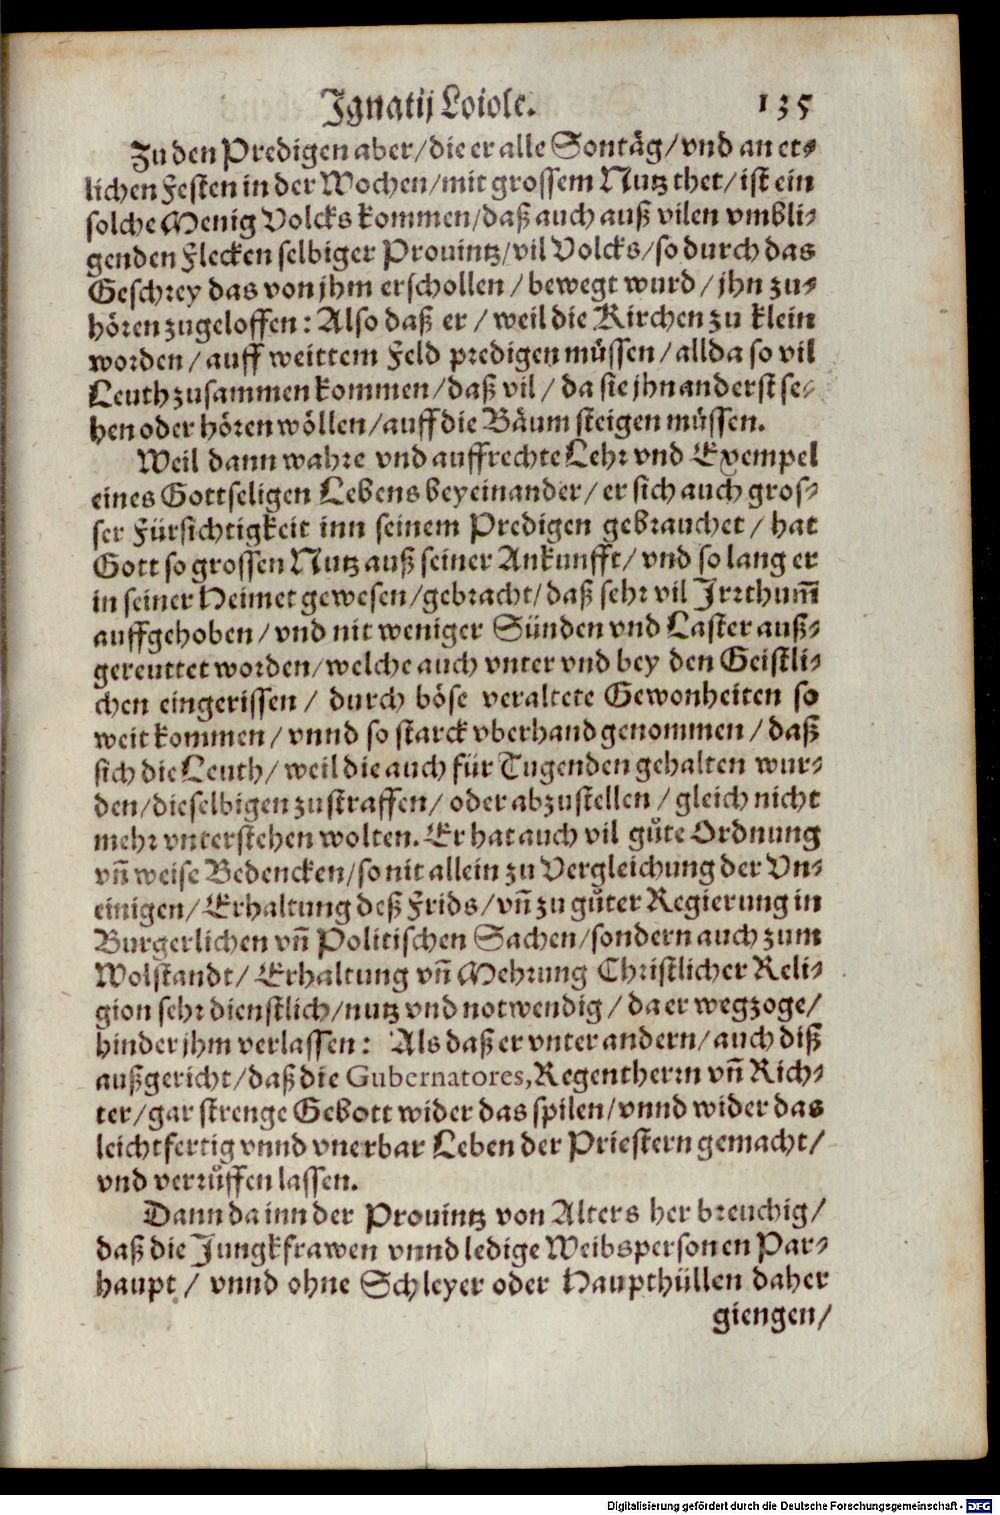 Ignatij Loiole. 135
Zu den Predigen aber/die er alle Sontäg/vnd an et-
lichen Festen in der Wochen/mit grossem Nutz thet/ist ein
solche Menig Volcks kommen/daß auch auß vilen vmbli-
genden Flecken selbiger Prouintz/vil Volcks/so durch das
Geschrey das von jhm erschollen/bewegt wurd/jhn zu-
hören zugeloffen: Also daß er/weil die Kirchen zu klein
worden/auff weittem Feld predigen müssen/allda so vil
Leuth zusammen kommen/daß vil/da sie jhn anderst se-
hen oder hören wöllen/auff die Bäum steigen müssen.
Weil dann wahre vnd auffrechte Lehr vnd Exempel
eines Gottseligen Lebens beyeinander/er sich auch gros-
ser Fürsichtigkeit inn seinem Predigen gebrauchet/hat
Gott so grossen Nutz auß seiner Ankunfft/vnd so lang er
in seiner Heimet gewesen/gebracht/daß sehr vil Irrthum̃
auffgehoben/vnd nit weniger Sünden vnd Laster auß-
gereuttet worden/welche auch vnter vnd bey den Geistli-
chen eingerissen/durch böse veraltete Gewonheiten so
weit kommen/vnnd so starck vberhand genommen/daß
sich die Leuth/weil die auch für Tugenden gehalten wur-
den/dieselbigen zustraffen/oder abzustellen/gleich nicht
mehr vnterstehen wolten. Er hat auch vil gůte Ordnung
vñ weise Bedencken/so nit allein zu Vergleichung der Vn-
einigen/Erhaltung deß Frids/vñ zu gůter Regierung in
Burgerlichen vñ Politischen Sachen/sondern auch zum
Wolstandt/Erhaltung vñ Mehrung Christlicher Reli-
gion sehr dienstlich/nutz vnd notwendig/da er wegzoge/
hinder jhm verlassen: Als daß er vnter andern/auch diß
außgericht/daß die Gubernatores, Regentherrn vñ Rich-
ter/gar strenge Gebott wider das spilen/vnnd wider das
leichtfertig vnnd vnerbar Leben der Priestern gemacht/
vnd verrůffen lassen.
Dann da inn der Prouintz von Alters her breuchig/
daß die Jungkfrawen vnnd ledige Weibspersonen Par-
haupt/vnnd ohne Schleyer oder Haupthüllen daher
giengen/
Digitalisierung gefördert durch die Deutsche Forschungsgemeinschaft - DFG